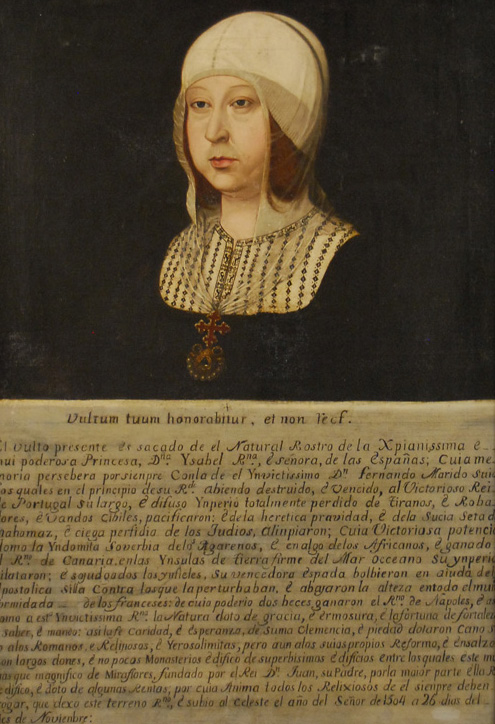 Vultum tuum honorabitur, et non
El vulto presente es sacado de el Natural Rostro de la Xpianissima é
mui poderosa Princesa, Dña Ysabel Rna, é señora, de las Españas; Cuia me
moria persebera por siempre Con la de el Ynvictissimo Dn Fernando Marido
los quales en el principio de su abiendo destruido, é Vencido, al Victorioso Rei
de Portugal su largo, é difuso Ynperio totalmente perdido de Tiranos, é Roba
dores, é Vandos Cibiles, pacificaron: é de la heretica pravidad, é dela Sucia Seta d
mahamaz, é ciega perfidia de los Judios, alinpiaron; Cuia Victoriosa potenci
domo la Yndomita Soverbia delos Agarenos, é en algo de los Africanos, é ganado
el Rno de Canaria, en las Ynsulas de tierra firme del Mar occeano Su ynperio
dilataron; é los ynfieles. Su vencedora espada bolbieron en aiuda de
Apostolica Silla Contra los que la perturbaban, é abajaron la alteza en todo el mu
de los franceses: de cuio poderio dos beces ganaron el Rno de Napoles, é
como a est Ynvictissima Rna la Natura doto de gracia, é ermosura, é la fortuna de fortale
saber, é mando: asi la fé Caridad, é Esperanza, de Suma Clemencia, é piedad dotaron
alos Romanos, é Relijiosos, é Yerosolimitas, pero aun alos suias propios Reformo, é ensalzo
con largos dones, é no pocas Monasterios é difico de superbisimos é dificios entre los quales este
mas que magnifico de Miraflores, fundado por el Rei Dn Juan, su Padre, por la maior parte ella
edifico, é doto de algunas Rentas, por cuia Anima todos los Relixiosos de el sienpre deben
rogar, que dexo este terreno Rno, é subio al Celeste el año del Señor de 1504 a 26 dias del
mes de Noviembre: